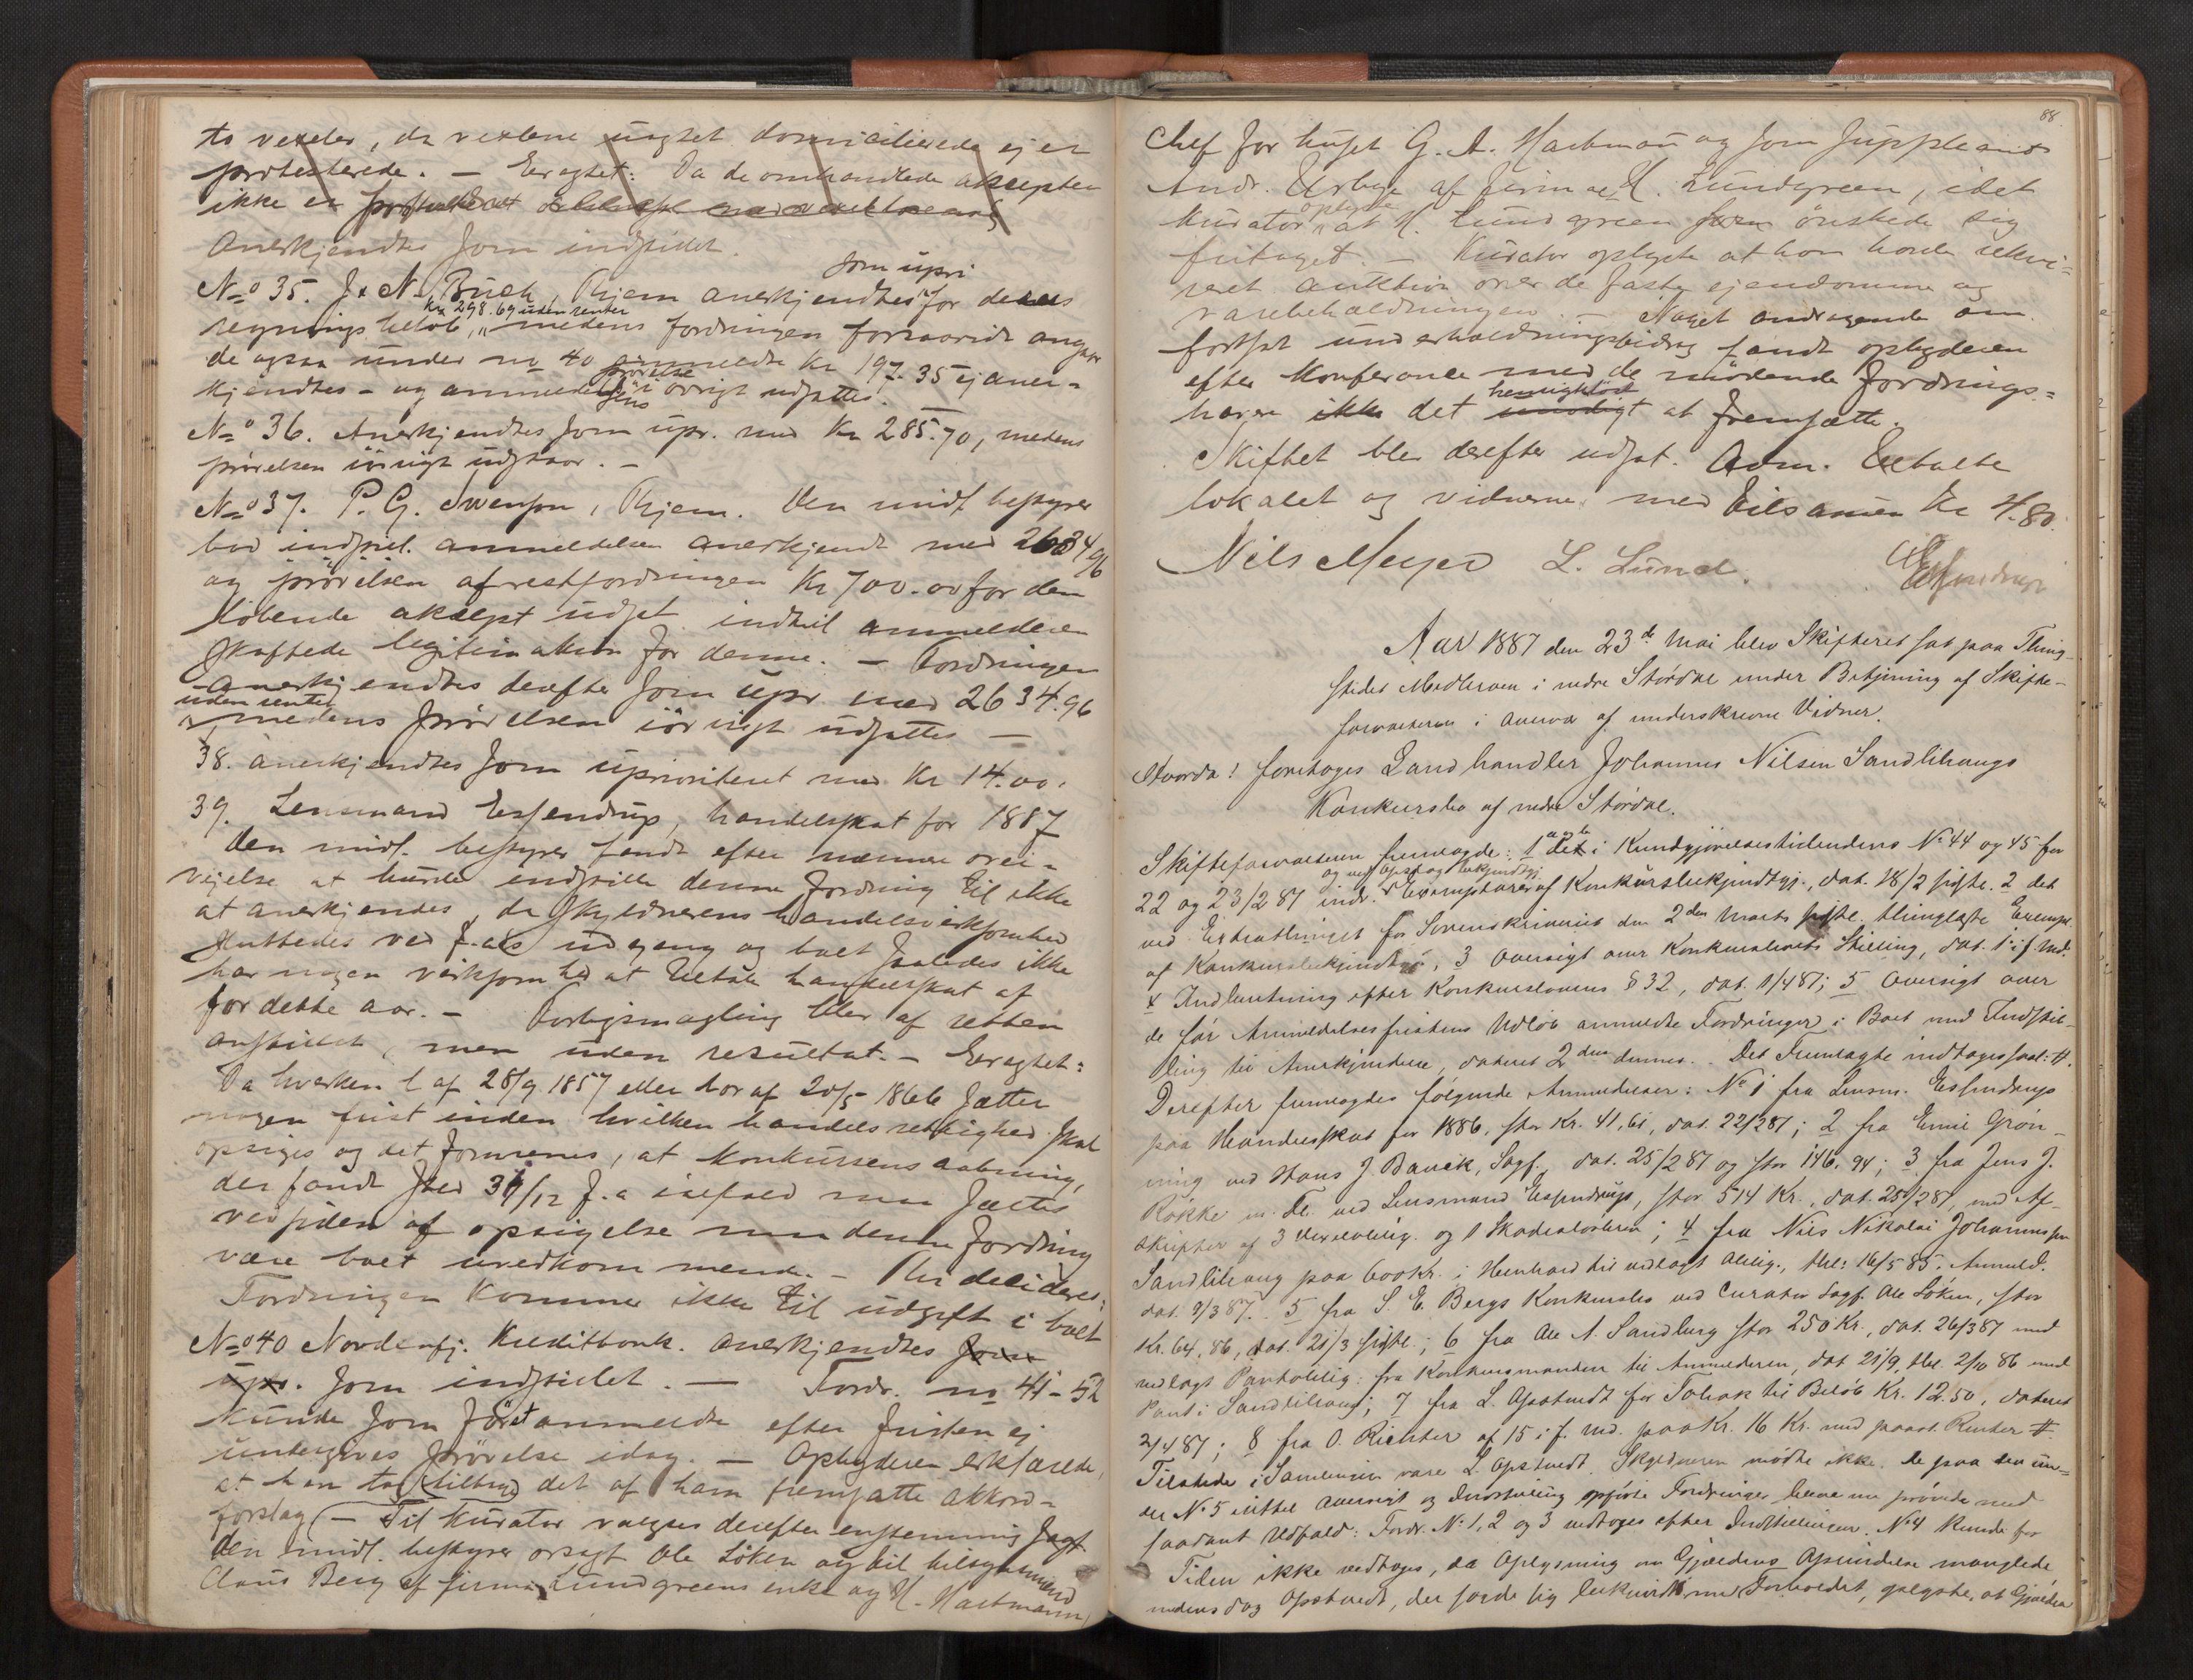 to vexeler, da vexlene uagtet domicilierede ej er
protesterede. — Eragtet: Da de omhandlede aksepter
ikke er
anerkjendtes som indstillet.
No 35. J. N. Buch, Thjem anerkjendtes som upri for deres
regnings beløb, kr 298.69 uden renter medens fordringen forsaavidt angaar
de ogsaa under no 40 anmeldte Kr 197.35 ej aner-
kjendtes - og anmeldelsens prøvelse i øvrigt udsattes. —
No 36. Anerkjendtes som upr. med Kr 285.70, medens
prøvelsen iøvrigt udstaar. —
No 37. P. G. Svenson, Thjem. Den midl bestyrer
bod indstil. anmeldelsen anerkjendt med 2634 96
og prøvelsen af restfordringen Kr 700.00 for den
løbende aksept udsat indtil anmelderen
skaffede legitimation for denne. — Fordringen
anerkjendtes derefter som upr med 2634.96
uden renter
medens prøvelsen iøvrigt udsattes —
38. anerkjendtes som uprioriteret med Kr 14.00.
39. Lensmand Essendrup, handelsskat for 1887
Den midl. bestyrer fandt efter nærmere over-
vejelse at burde indstille denne fordring til ikke
at anerkjendes, da skyldnerens handelsvirksomhed
sluttedes ved f. aars udgang og boet saaledes ikke
har nogen virksomhed at betale handelsskat af
for dette aar. — Forligsmægling blev af retten
anstillet, men uden resultat. — Eragtet:
Da hverken l af 28/9 1857 eller lov af 20/5 1866 sætter
nogen frist inden hvilken handelsrettighed skal
opsiges og det formenes, at konkursens aabning,
der fandt sted 31/12 f. a isefald maa sættes
ved siden af opsigelse maa denne fordring
være boet uvedkommende. — Thi decideres:
Fordringen kommer ikke til udgift i boet
No 40 Nordenfj. Kreditbank. anerkjendtes som
upr. som indstillet. — Fordr. no 41-52
kunde som først anmeldte efter fristen ej
undergives prøvelse idag. — Opbyderen erklærede,
at han tog tilbage det af ham fremsatte akkord-
forslag — Til kurator valgtes derefter enstemmig sagf.
den midl. bestyrer orsagf Ole Løken og til tilsynsmænd
Claus Berg af firma Lundgreens enke og H. Hartmann,
88
Chef for huset G. A. Hartman og som suppleant
Andr. Ursbye af firmaet H. Lundgreen, idet
kurator oplyste at H. Lundgreen ønskede sig
fritaget. — Kurator oplyste at han havde rekvi-
reret auktion over de faste ejendomme og
varebeholdningen. — Noget andragende om
fortsat underholdningsbidrag fandt opbyderen
efter konferance med de mødende fordrings-
havere ikke det hensigtsløst at fremsætte.
Skiftet blev derefter udsat. Adm. betalte
lokalet og vidnerne med tilsamen Kr 4.80.
Nils Meyer L. Lund. Essendrup
Aar 1887 den 23de Mai blev Skifteret sat paa Thing-
stedet Medleraen i nedre Størdal under Betjening af Skifte-
forvalteren i Overvær af underskrevne Vidner.
Hvorda! foretoges Landhandler Johannes Nilsen Sandlihaugs
Konkursbo af nedre Størdal.
Skifteforvalteren fremlagde: 1 a og b det i Kundgjørelsestidendens No 44 og 45 for
22 og 23/2 87 indr. og ved Opslag bekjendtgj. Exemplarer af Konkursbekjendtgj., dat. 18/2 sidstl. 2 det
ved Extrathinget for Sorenskriveriet den 2den Marts sidstl. thinglæste Exempl.
af Konkursbekjendtgj., 3 Oversigt over Konkursboets Stilling, dat. 1 i f. Md.
4 Indberetning efter Konkurslovens § 32, dat. 1/4 87; 5 Oversigt over
de før Anmeldelsesfristens Udløb anmeldte Fordringer i Boet med Indstil-
ling til Anerkjendelse, dateret 2den dennes. Det Fremlagte indtages saal. #.
Derefter fremlagdes følgende Anmeldelser: No 1 fra Lensm. Essendrup
paa Handelsskat for 1886, stor Kr. 41,61, dat. 22/2 87; 2 fra Emil Grøn-
ning ved Hans J. Bauck, Sagf., dat. 25/2 87 og stor 146,94; 3 fra Jens J.
Røkke m. Fl. ved Lensmand Essendrup, stor 514 Kr., dat. 25/2 87, med Af-
skripter af 3 Vexelobligg. og 1 Skadesløsbrev; 4 fra Nils Nikolai Johannessen
Sandlihaug paa 600 Kr. i Henhold til vedlagt Oblig., thl: 16/5 85. Anmeld.
dat. 9/3 87. 5 fra S. E. Bergs Konkursbo ved Curator Sagf. Ole Løken, stor
Kr. 64,86, dat. 21/3 sidstl.; 6 fra Ole A. Sandberg stor 250 Kr., dat. 26/3 87 med
vedlagt Pantoblig: fra Konkursmanden til Anmelderen, dat 21/9, thl. 2/10 86 med
Pant i Sandlihaug; 7 fra L. Opstvedt for Tobak til Beløb Kr. 12.50, dateret
2/4 87; 8 fra O. Richter af 15 i f. Md. paa Kr. 16 Kr. med paaал. Renter #.
Tilstede i Samlingen vare L. Opstvedt. Skyldneren mødte ikke. De paa den un-
der No 5 irettel. Oversigt og Indstilling opførte Fordringer bleve nu prøvede med
saadant Udfald: Fordr. No 1, 2 og 3 vedtoges efter Indstillingen. No 4 kunde for
Tiden ikke vedtages, da Oplysning om Gjældens Oprindelse manglede
medens dog Opstvedt, der sagde sig bekjendt med Forholdet, oplyste, at Gjælden